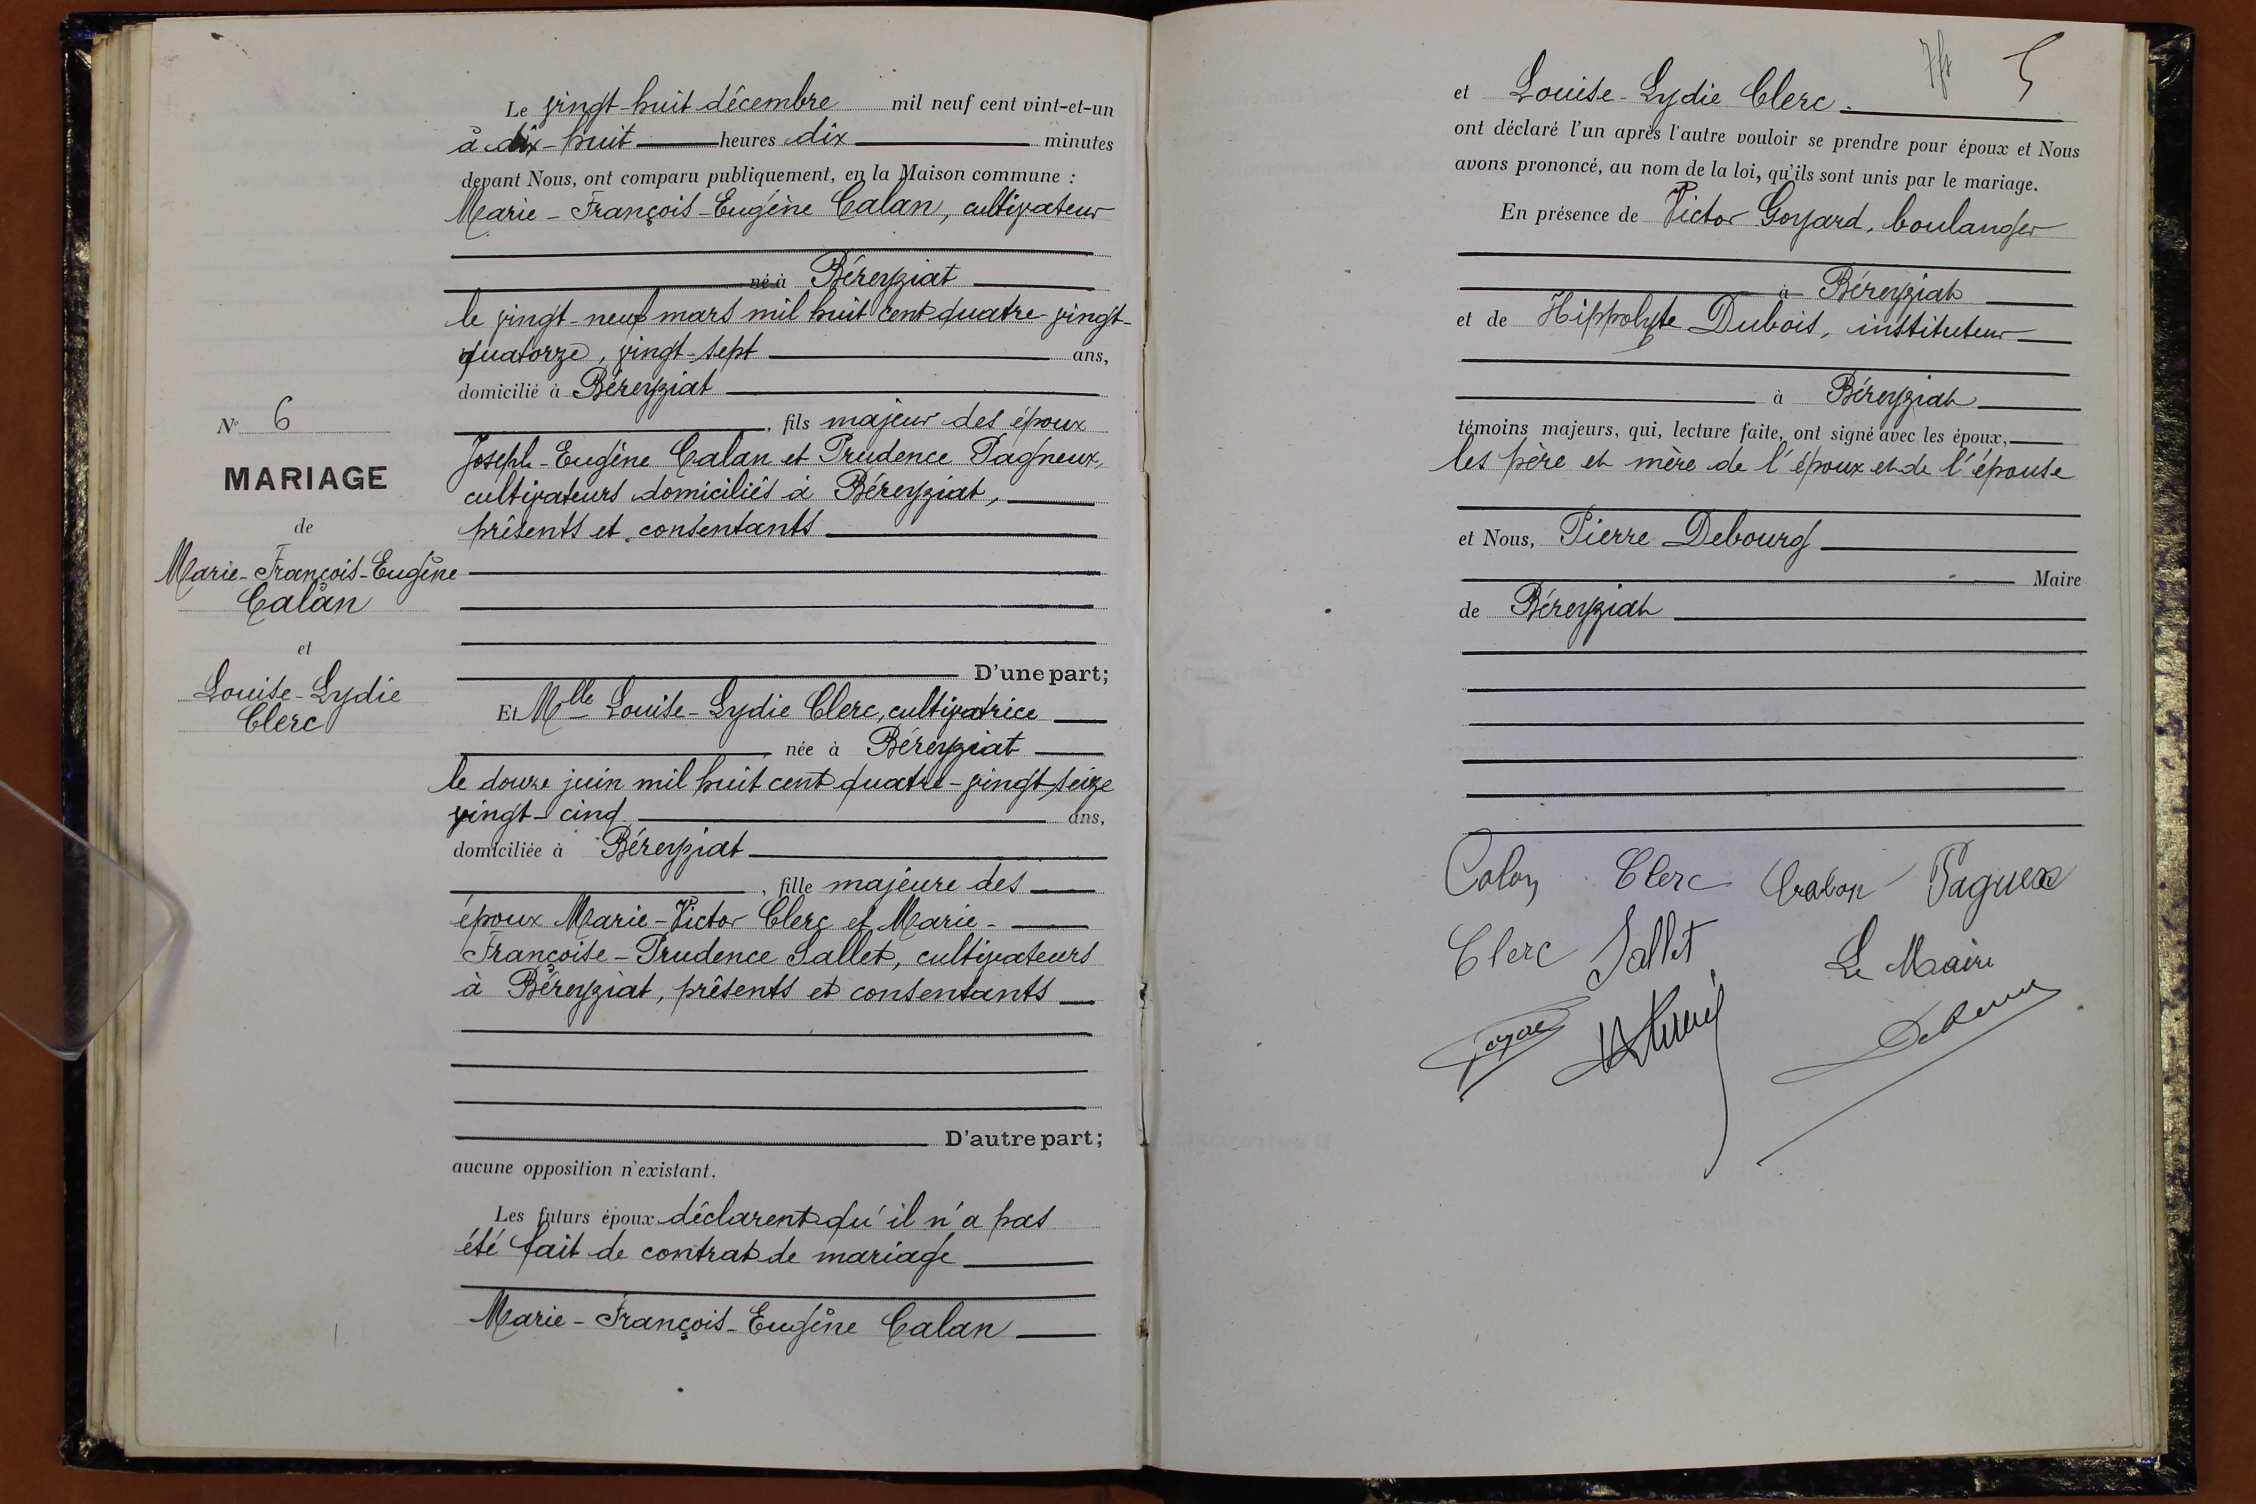 N° 6
MARIAGE
de
Marie-François-Eugène
Calan
et
Louise-Lydie
Clerc
Le vingt-huit décembre mil neuf cent vint-et-un
à dix-huit heures dix minutes
devant Nous, ont comparu publiquement, en la Maison commune :
Marie-François-Eugène Calan, cultivateur
né à Béreyziat
le vingt-neuf mars mil huit cent quatre-vingt-
quatorze, vingt-sept ans,
domicilié à Béreyziat
, fils majeur des époux
Joseph-Eugène Calan et Prudence Pagneux,
cultivateurs domiciliés à Béreyziat,
présents et consentants
D'une part;
Et Mlle Louise-Lydie Clerc, cultivatrice
née à Béreyziat
le douze juin mil huit cent quatre-vingt-seize
vingt-cinq ans,
domiciliée à Béreyziat
, fille majeure des
époux Marie-Victor Clerc et Marie-
Françoise-Prudence Sallet, cultivateurs
à Béreyziat, présents et consentants
D'autre part;
aucune opposition n'existant.
Les futurs époux déclarent qu'il n'a pas
été fait de contrat de mariage
Marie-François-Eugène Calan
5
et Louise-Lydie Clerc.
ont déclaré l'un après l'autre vouloir se prendre pour époux et Nous
avons prononcé, au nom de la loi, qu'ils sont unis par le mariage.
En présence de Victor Goyard, boulanger
à Béreyziat
et de Hippolyte Dubois, instituteur
à Béreyziat
témoins majeurs, qui, lecture faite, ont signé avec les époux,
les père et mère de l'époux et de l'épouse
et Nous, Pierre Debourg
Maire
de Béreyziat
Calan Clerc Pagneux
Clerc Sallet Le Maire